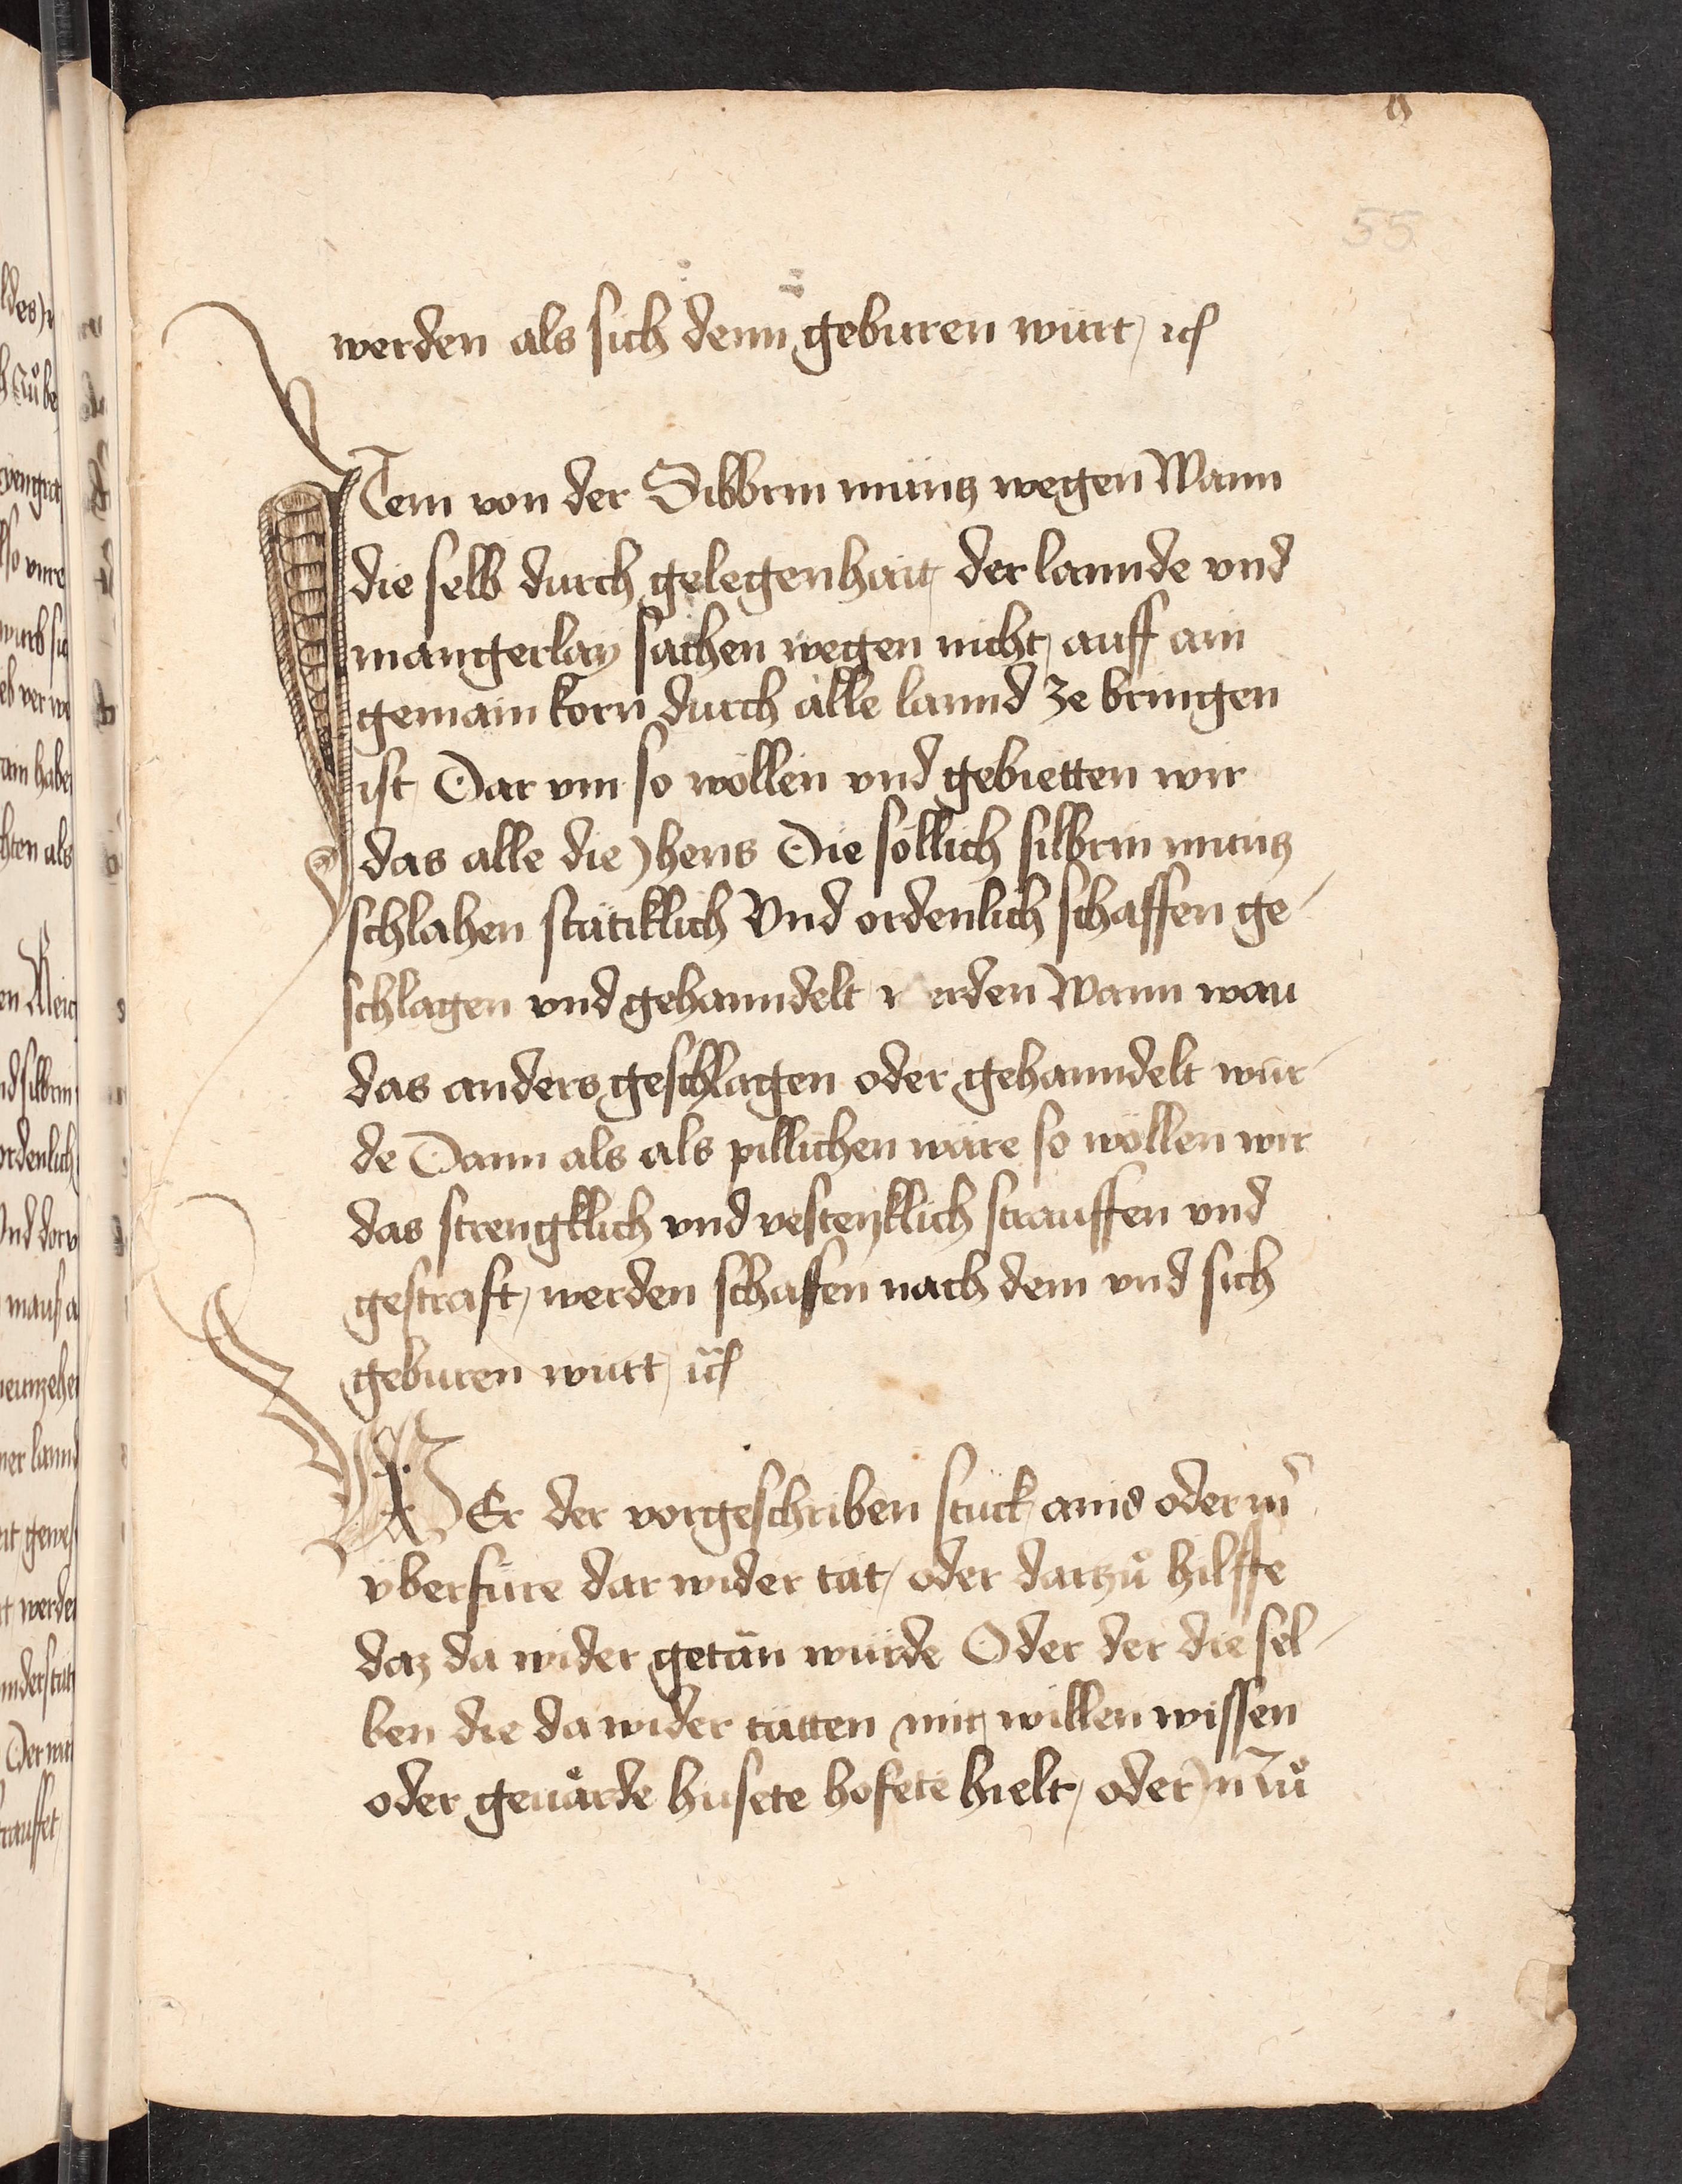 55
werden als sich denn geburen würt / ꝛc
ITem von der Silbrin müntz wegen Wann
die selb durch gelegenhait der lannde vnd
mangerlay sachen wegen nicht auff ain
gemain korn durch alle lannd ze bringen
ist Dar vm so wöllen vnd gebietten wir
das alle die Jhens Die söllich silbrin müntz
schlahen stätiklich Vnd ordenlich schaffen ge-
schlagen vnd gehanndelt werden Wann wau
das anders geschlagen oder gehanndelt wür-
de Dann als als pillichen wäre so wöllen wir
das strengklich vnd vestenklich strauffen vnd
gestraft / werden schaffen nach dem vnd sich
geburen würt / ꝛc
WEr der vorgeschriben stück ains oder mͤ
vberfüre dar wider tät / oder dartzů hilffte
daz da wider getän würde Oder der die sel-
ben die da wider tätten mit willen wissen
oder geuärde husete hofete hielt / oder Jn zů